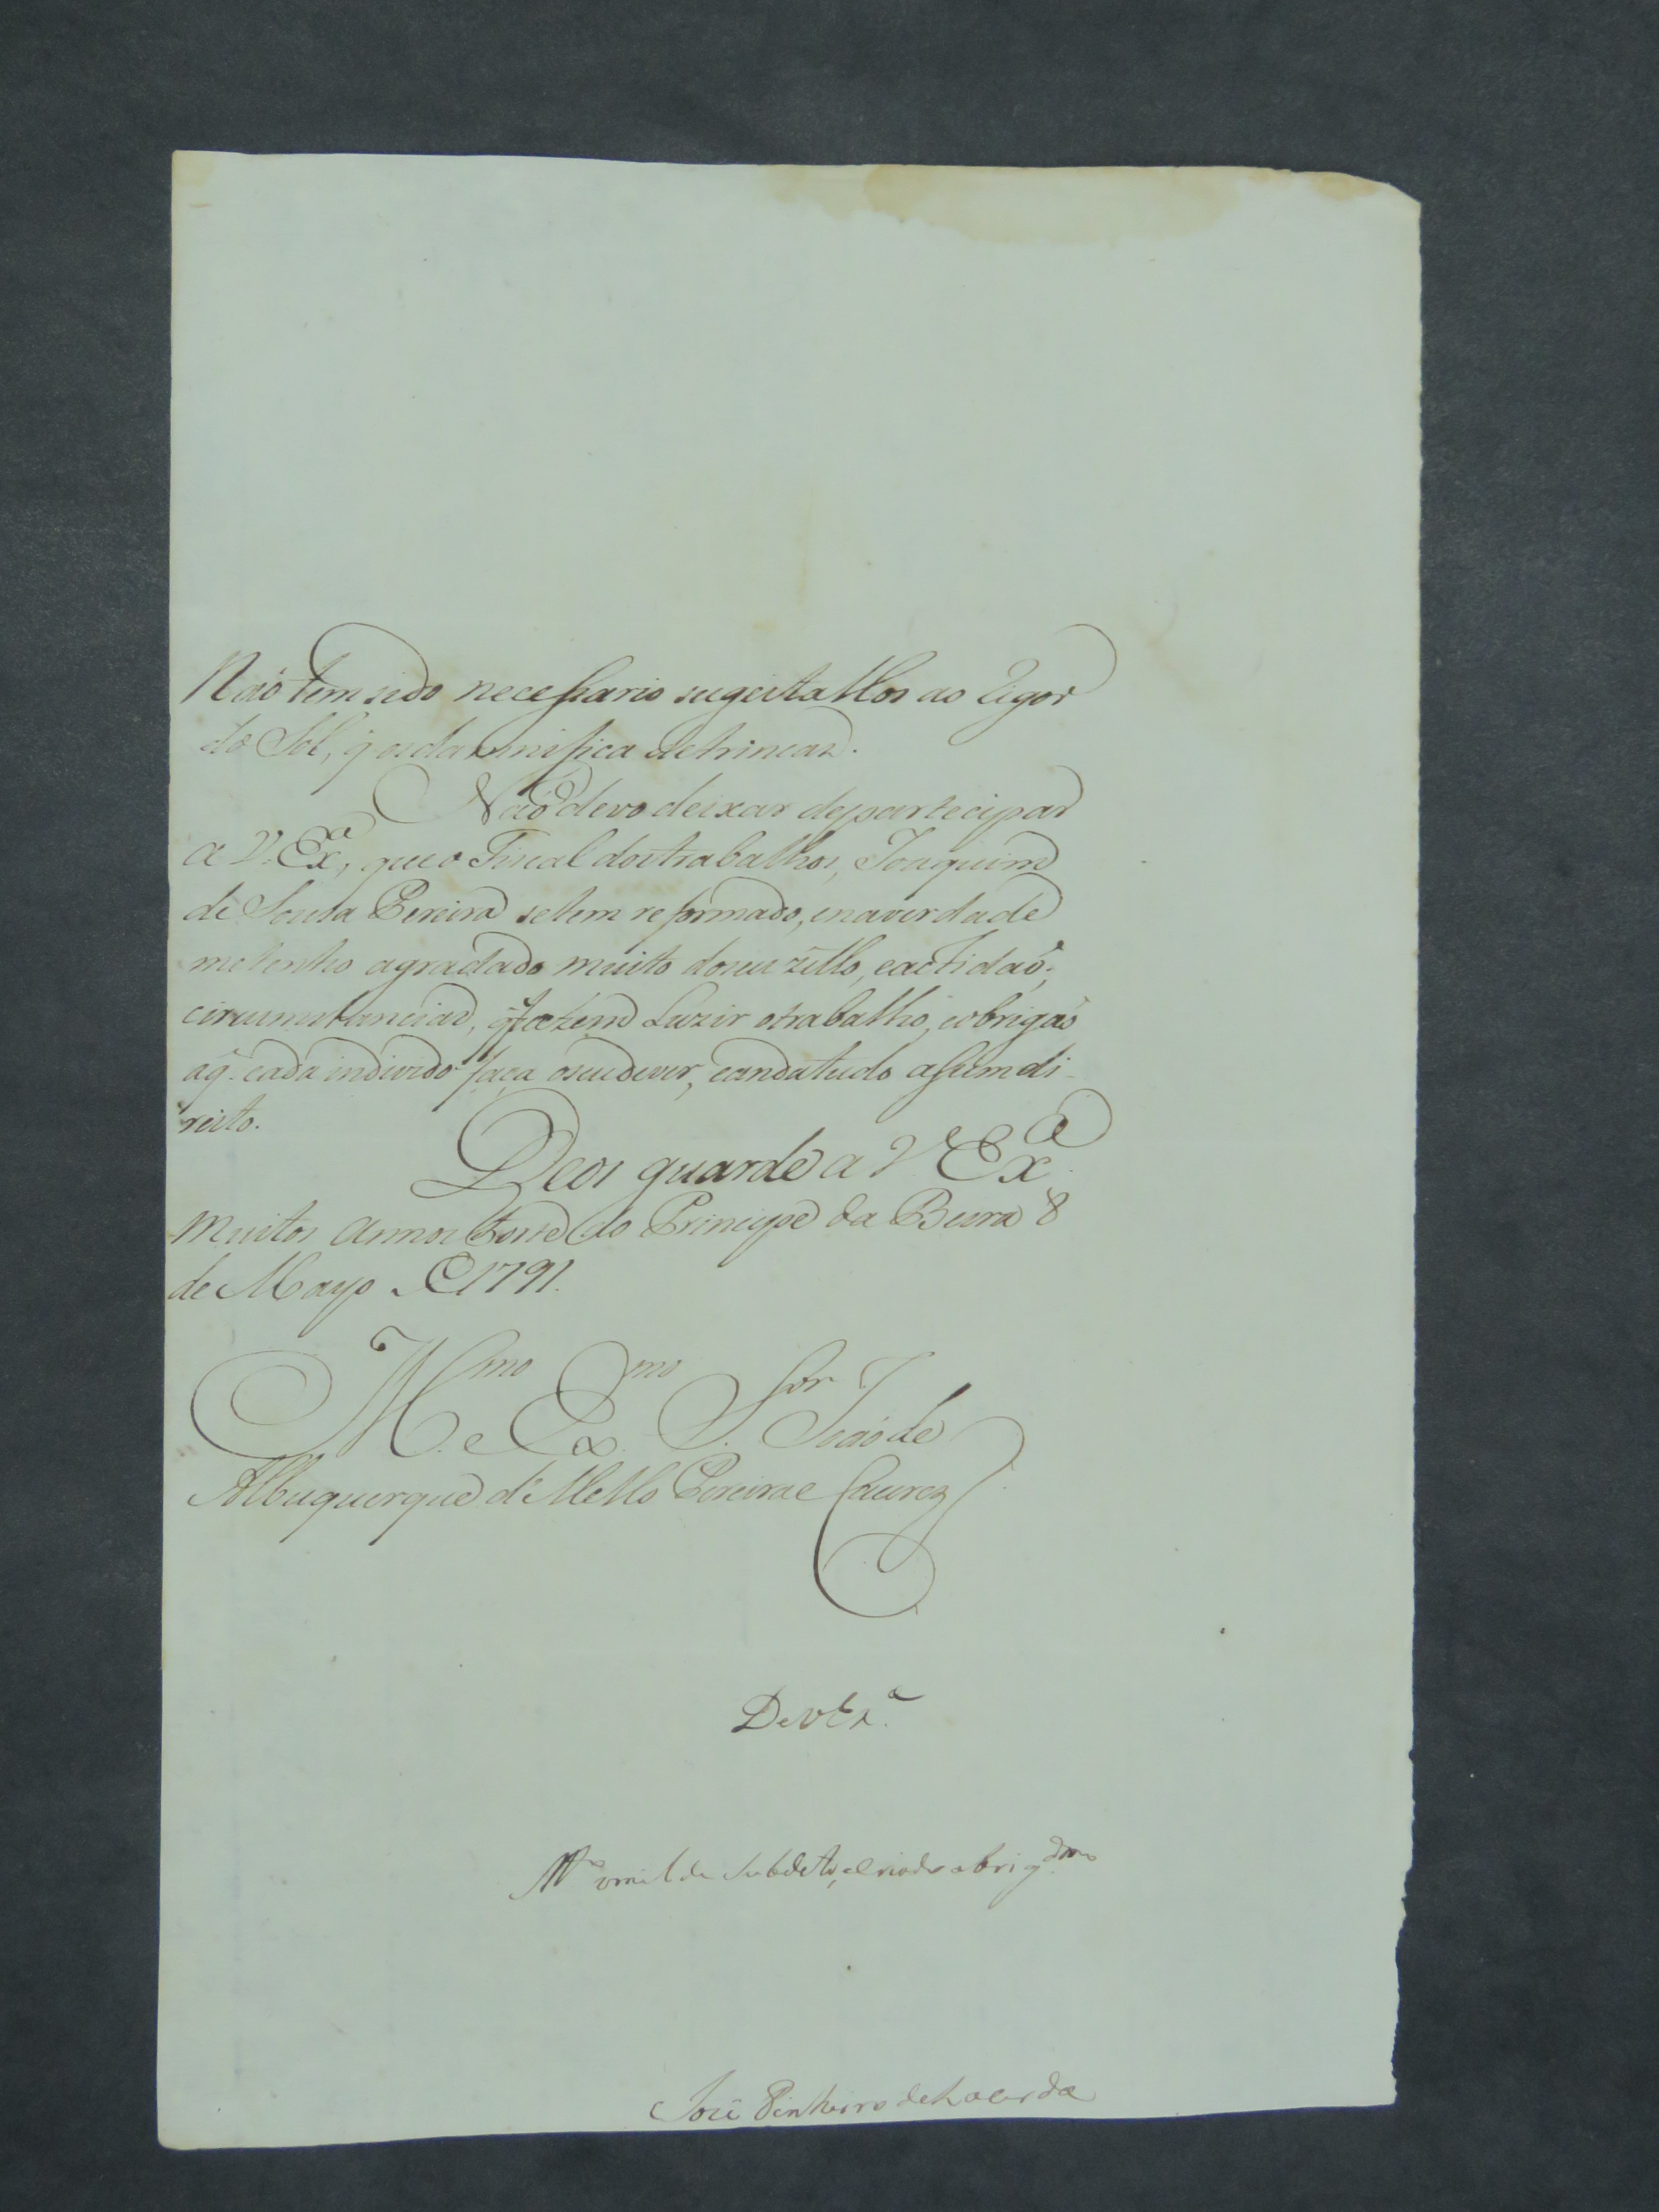 Naõ tem sido necessario sugeitallos ao Rigor
do Sol, q̃ os damnifica
Naõ devo deixar departecipar
a V. Exª, que o Fiscal dos trabalhos, Joaquim
de Souza Pereira setem reformado, enaverdade
metenho agradado muito doseu zello, eactidaõ;
circumstancias, q̃ fazem Luzir otrabalho, eobrigaõ
aq̃. cada individo faça oseudever, eandatudo assim di-
reito.
Deos guarde a V. Exª.
muitos annos Forte do Principe da Beira 8
de Mayo de 1791.
Illmo. e Exmo. Sor. Joaõ de
Albuquerque de Mello Pereira e Caceres
De V Exª.
Mto umilde Subdito, eCriado obrigdmo
Joze Pinheiro deLacerda